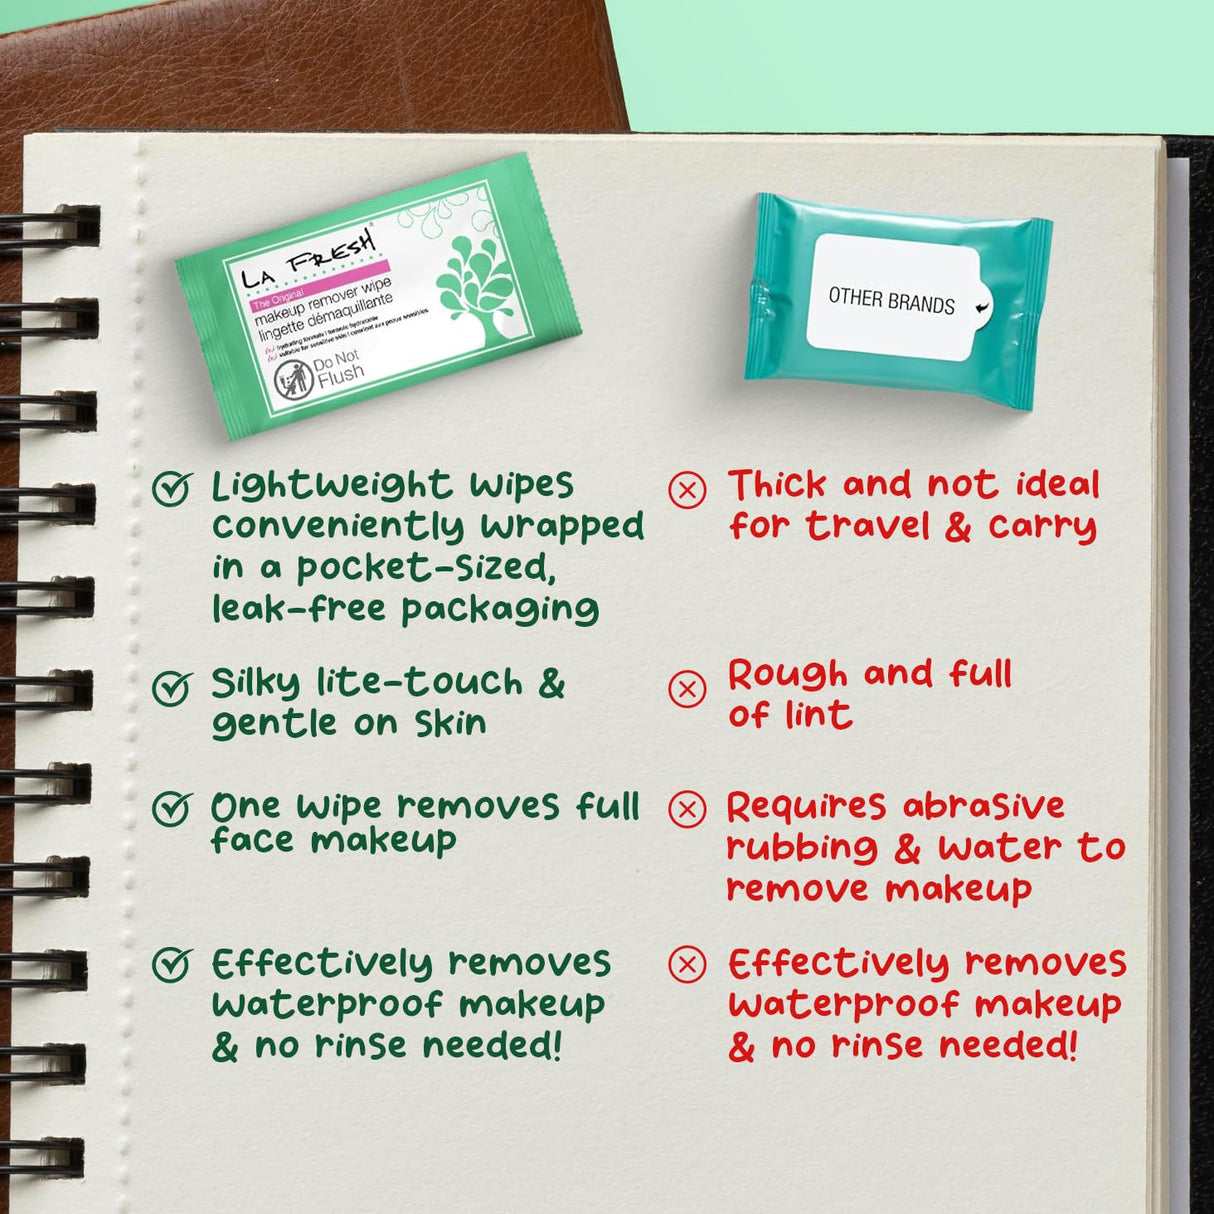 LA FRESH
The Original
makeup remover wipe
lingette démaquillante
hydrating formula | formule hydratante
suitable for sensitive skin | convient aux peaux sensibles
Do Not
Flush
OTHER BRANDS
Lightweight wipes
conveniently wrapped
in a pocket-sized,
leak-free packaging
Thick and not ideal
for travel & carry
Silky lite-touch &
gentle on skin
Rough and full
of lint
One wipe removes full
face makeup
Requires abrasive
rubbing & water to
remove makeup
Effectively removes
waterproof makeup
& no rinse needed!
Effectively removes
waterproof makeup
& no rinse needed!